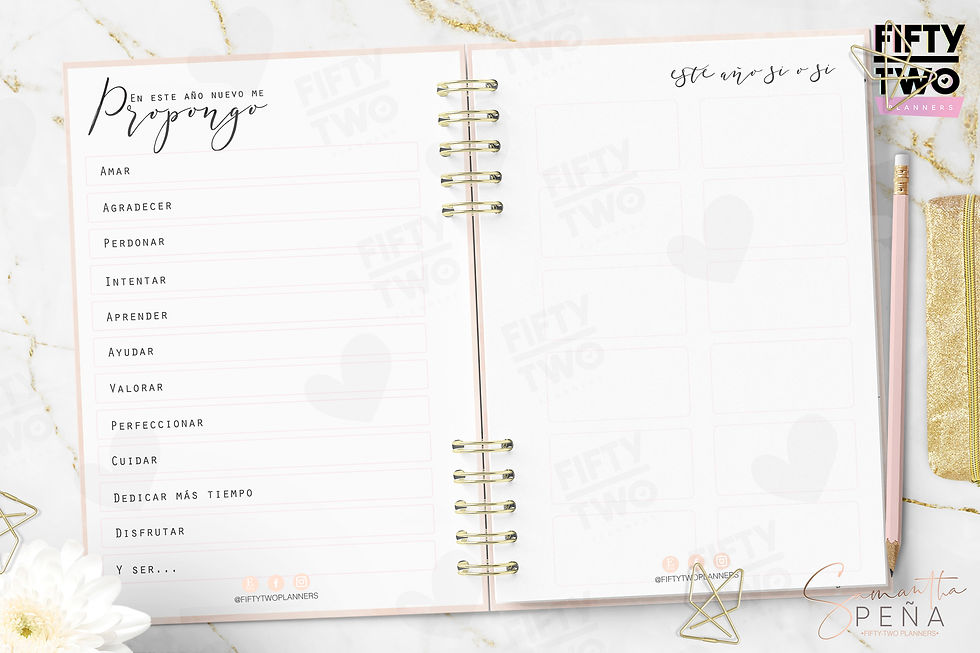 En este año nuevo me
Propongo
Amar
Agradecer
Perdonar
Intentar
Aprender
Ayudar
Valorar
Perfeccionar
Cuidar
Dedicar más tiempo
Disfrutar
Y ser...
@FIFTYTWOPLANNERS
este año si o si
@FIFTYTWOPLANNERS
FIFTY
TWO
PLANNERS
FIFTY
TWO
FIFTY
TWO
FIFTY
TWO
FIFTY
TWO
FIFTY
TWO
Samantha
PEÑA
•FIFTY-TWO PLANNERS•